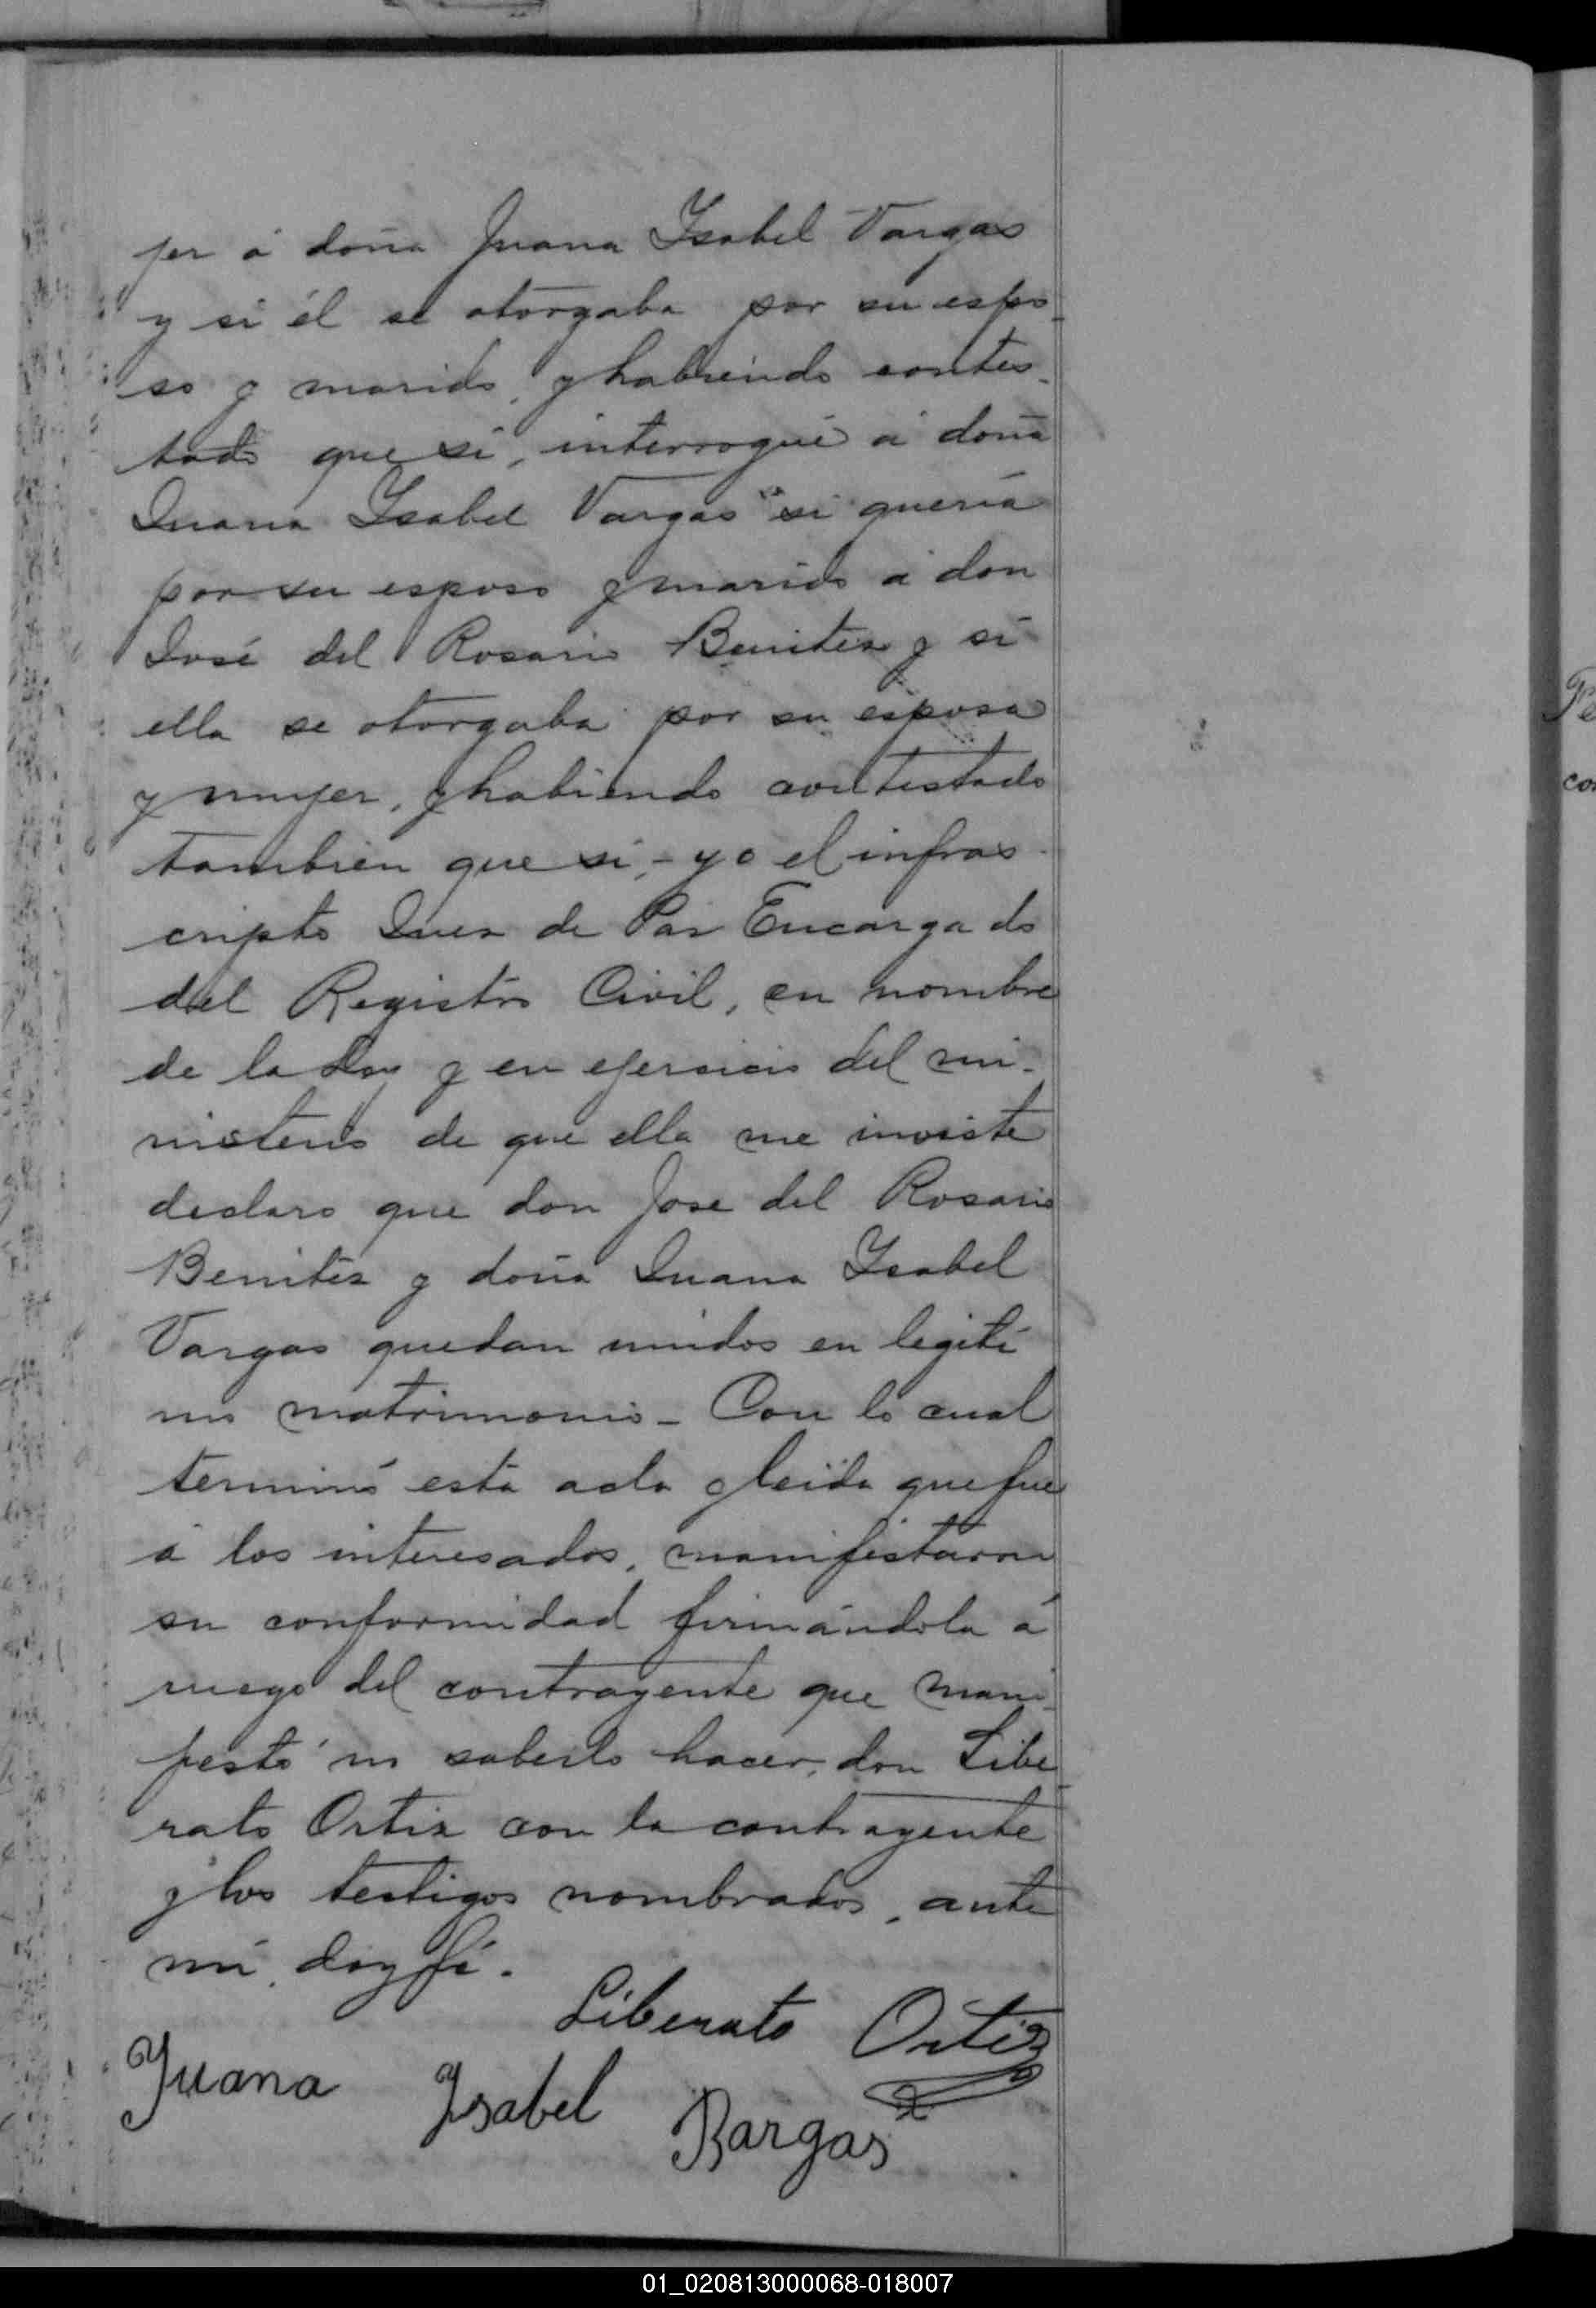 jer á doña Juana Ysabel Vargas
y si él se otorgaba por su espo-
so y marido, y habiendo contes-
tado que si, interrogué á doña
Juana Ysabel Vargas si quería
por su esposo y marido á don
José del Rosario Benites y si
ella se otorgaba por su esposa
y mujer, y habiendo contestado
tambien que si, - yo el infras-
cripto Juez de Paz Encargado
del Registro Civil, en nombre
de la Ley y en ejersicio del mi-
nisterio de que ella me inviste
declaro que don Jose del Rosario
Benites y doña Juana Ysabel
Vargas quedan unidos en legíti
mo matrimonio - Con lo cual
terminó esta acta y leída que fue
á los interesados, manifestaron
su conformidad firmándola á
ruego del contrayente que mani-
festó no saberlo hacer, don Libe-
rato Ortiz con la contrayente
y los testigos nombrados, ante
mí, doy fé.
Liberato Ortiz
Juana Ysabel Bargas
Pe
co
01_020813000068-018007